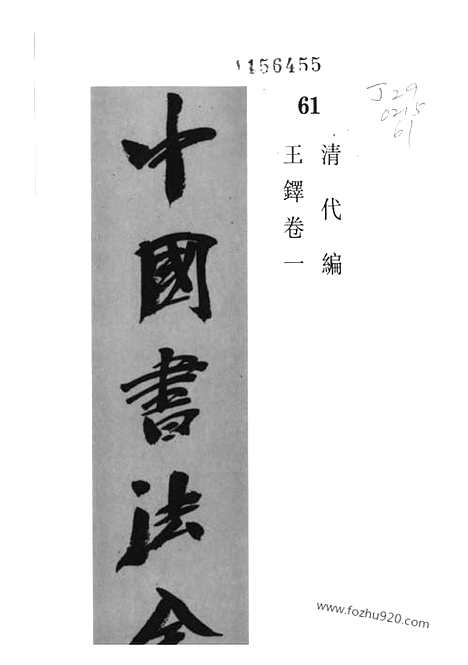 1156455
61
J29
0215
61
清代編
王鐸卷一
中國書法全
www.fozhu920.com